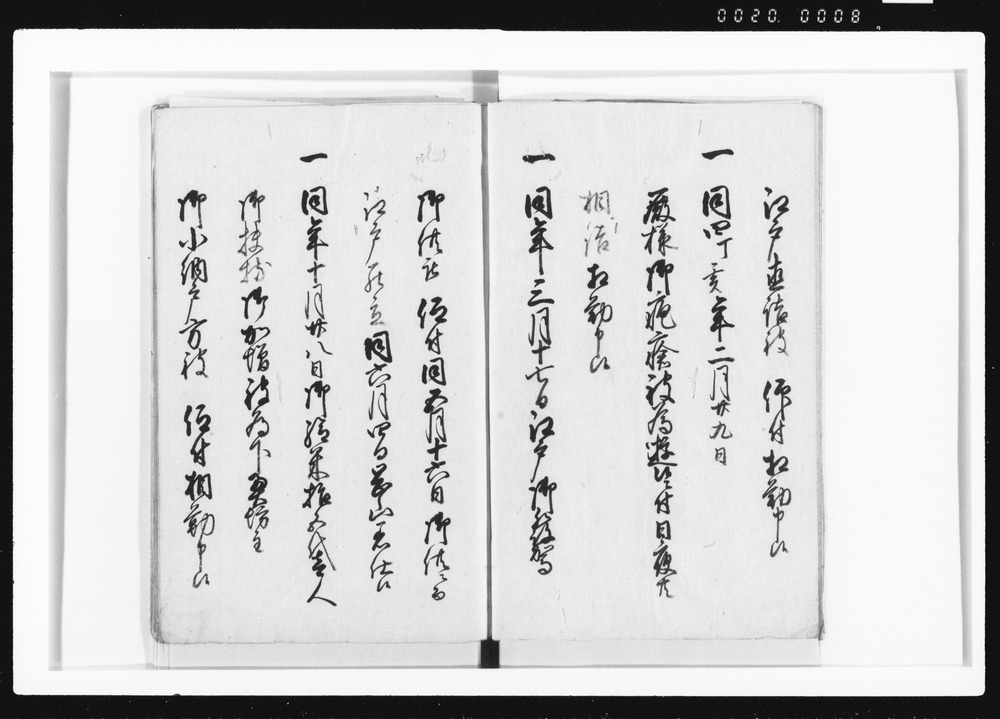 0020. 0008
江戸直詰被 仰付相勤申候
一 同四丁亥年二月廿九日
殿様御疱瘡被為遊候付日夜共
相詰相勤申候
一 同年三月十七日江戸御発駕
御供被 仰付同五月十六日御供ニ而
江戸罷立同六月四日 山着仕候
一 同年十月廿八日御給米拾石弐人
御扶持御加増被為下奥坊主
御小納戸方被 仰付相勤申候